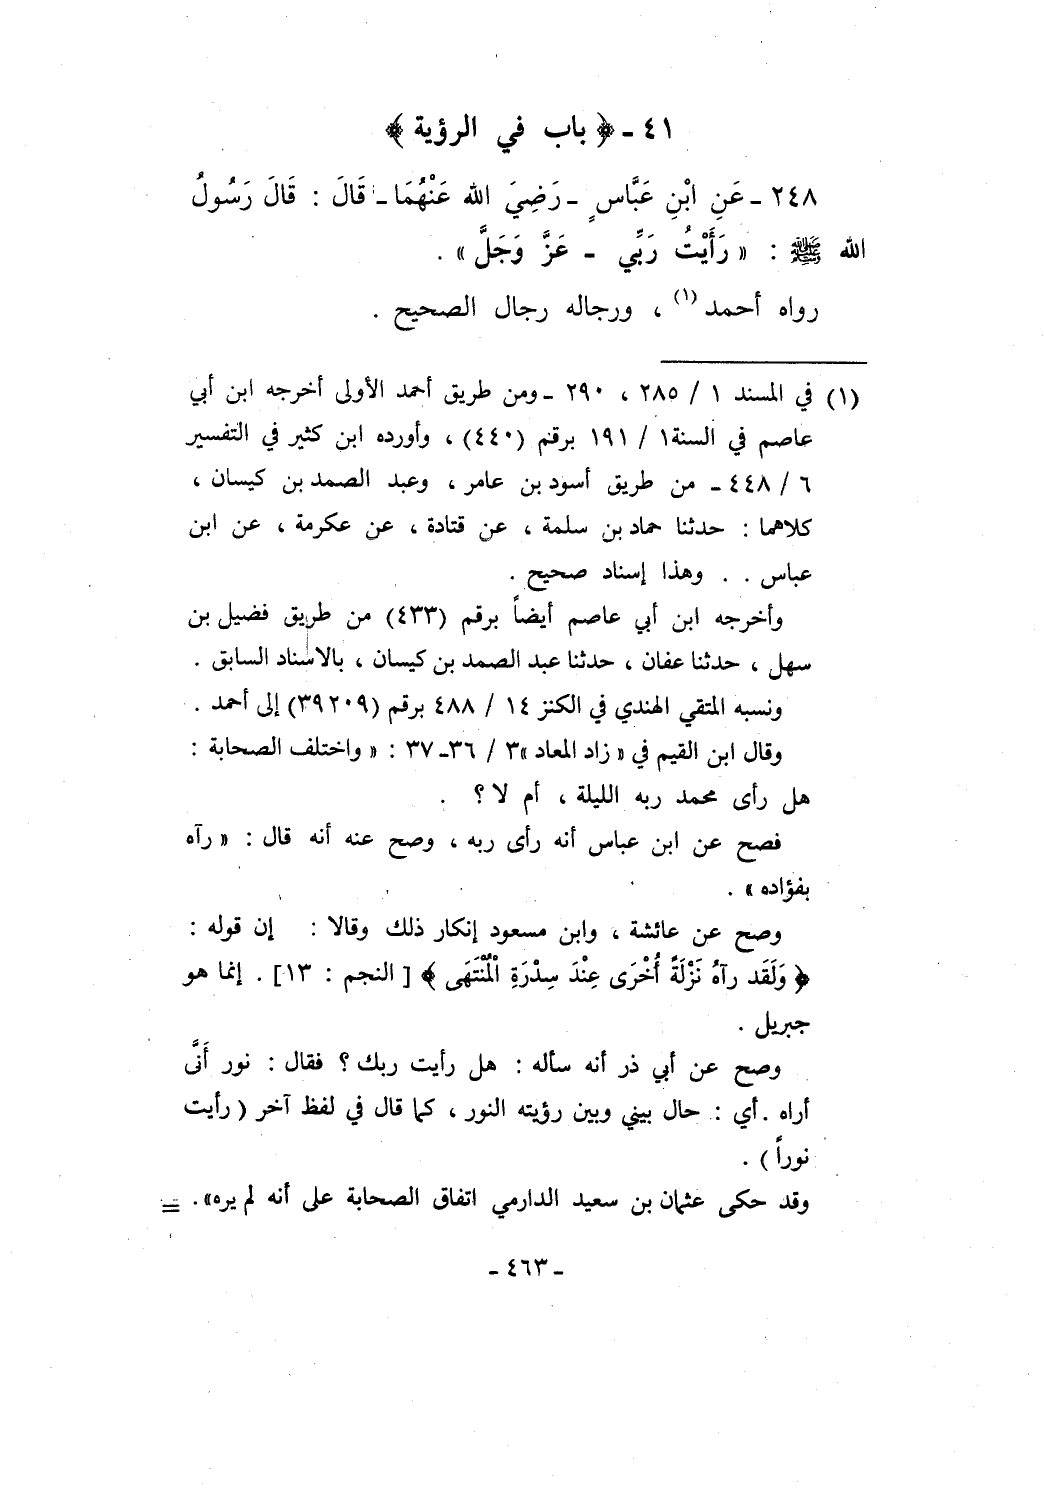 ٤١ - ﴿ باب في الرؤية ﴾
٢٤٨ - عَنِ ابْنِ عَبَّاسٍ - رَضِيَ الله عَنْهُمَا - قَالَ : قَالَ رَسُولُ
الله ﷺ : « رَأَيْتُ رَبِّي - عَزَّ وَجَلَّ » .
رواه أحمد (١) ، ورجاله رجال الصحيح .
(١) في المسند ١ / ٢٨٥ ، ٢٩٠ - ومن طريق أحمد الأولى أخرجه ابن أبي
عاصم في السنة ١ / ١٩١ برقم (٤٤٠) ، وأورده ابن كثير في التفسير
٦ / ٤٤٨ - من طريق أسود بن عامر ، وعبد الصمد بن كيسان ،
كلاهما : حدثنا حماد بن سلمة ، عن قتادة ، عن عكرمة ، عن ابن
عباس . . وهذا إسناد صحيح .
وأخرجه ابن أبي عاصم أيضاً برقم (٤٣٣) من طريق فضيل بن
سهل ، حدثنا عفان ، حدثنا عبد الصمد بن كيسان ، بالاسناد السابق .
ونسبه المتقي الهندي في الكنز ١٤ / ٤٨٨ برقم (٣٩٢٠٩) إلى أحمد .
وقال ابن القيم في « زاد المعاد » ٣ / ٣٦-٣٧ : « واختلف الصحابة :
هل رأى محمد ربه الليلة ، أم لا ؟ .
فصح عن ابن عباس أنه رأى ربه ، وصح عنه أنه قال : « رآه
بفؤاده » .
وصح عن عائشة ، وابن مسعود إنكار ذلك وقالا : إن قوله :
﴿ وَلَقَد رآهُ نَزْلَةً أُخْرَى عِنْدَ سِدْرَةِ الْمُنْتَهَى ﴾ [ النجم : ١٣ ] . إنما هو
جبريل .
وصح عن أبي ذر أنه سأله : هل رأيت ربك ؟ فقال : نور أَنَّى
أراه . أي : حال بيني وبين رؤيته النور ، كما قال في لفظ آخر ( رأيت
نوراً ) .
وقد حكى عثمان بن سعيد الدارمي اتفاق الصحابة على أنه لم يره» . =
- ٤٦٣ -